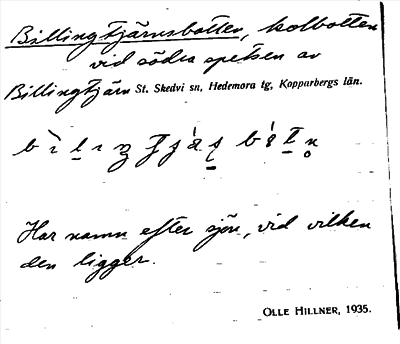 Billingtjärnsbotten, kolbotten
vid södra spetsen av
Billingtjärn St. Skedvi sn, Hedemora tg, Kopparbergs län.
Har namn efter sjön, vid vilken
den ligger.
OLLE HILLNER, 1935.